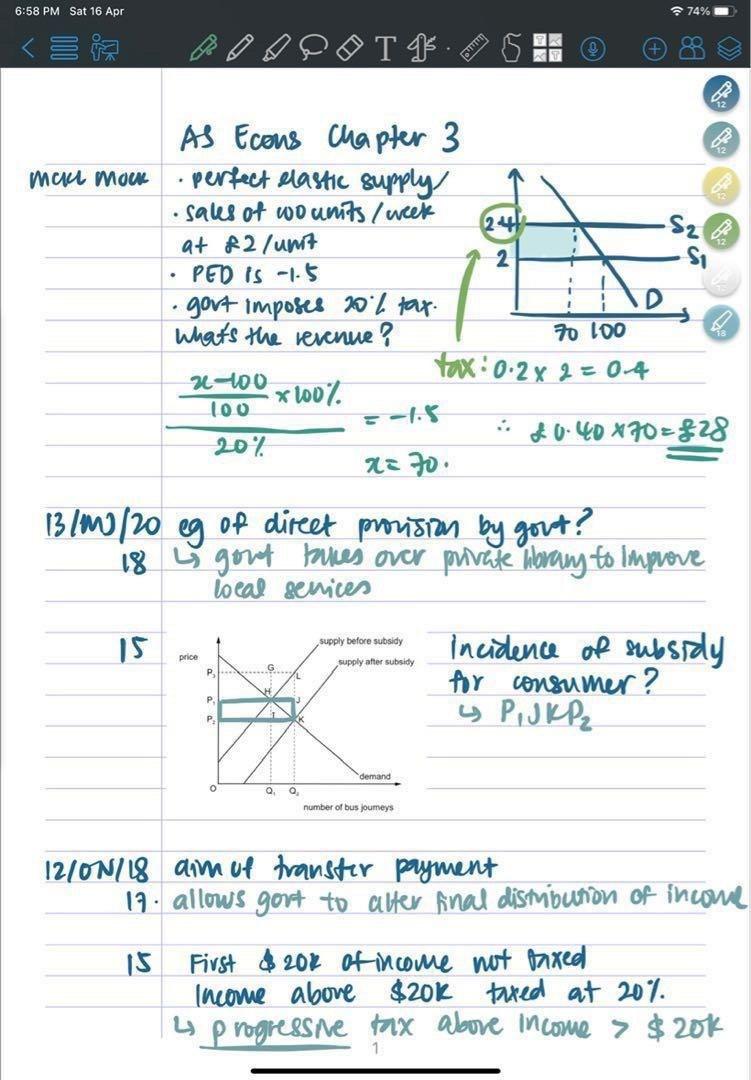 6:58 PM Sat 16 Apr
74%
AS Econs Chapter 3
MCKL MOCK
· perfect elastic supply
· sales of 100 units/week
at £2/unit
· PED is -1.5
· govt imposes 20% tax.
what's the revenue?
2.4
2
S2
S1
D
70 100
tax: 0.2 x 2 = 0.4
x-100
100
x 100%
20%
= -1.5
x = 70.
∴ £0.40 x 70 = £28
13/MJ/20 eg of direct provision by govt?
18 ↳ govt takes over private library to improve
local services
15
price
supply before subsidy
supply after subsidy
P3
G
L
P1
H
J
P2
I
K
demand
O
Q1
Q2
number of bus journeys
Incidence of subsidy
for consumer?
↳ P1JKP2
12/ON/18 aim of transfer payment
17. allows govt to alter final distribution of income
15 First $20k of income not taxed
Income above $20k taxed at 20%.
↳ progressive tax above income > $20k
1